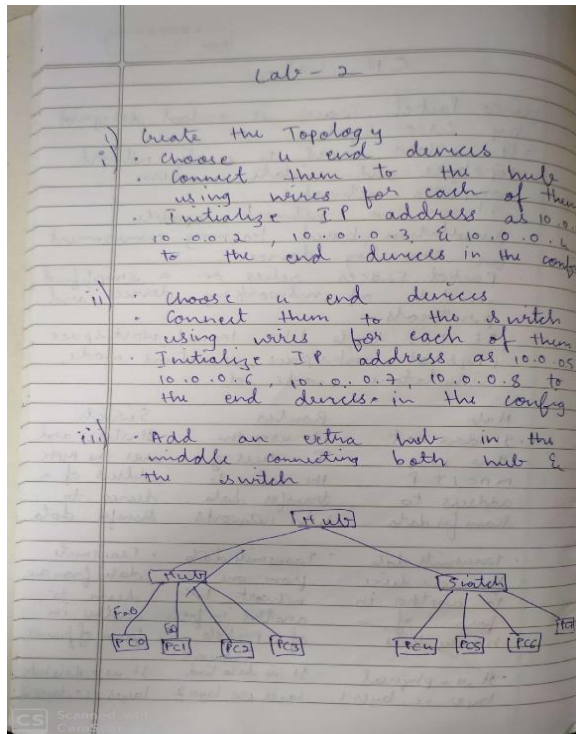 Lab - 2
i) Create the Topology
i) · Choose 4 end devices
· Connect them to the hub
using wires for each of them
· Initialize IP address as 10.0.
10.0.0.2, 10.0.0.3, & 10.0.0.4
to the end devices in the config
ii) · Choose 4 end devices
· Connect them to the switch
using wires for each of them
· Initialize IP address as 10.0.05
10.0.0.6, 10.0.0.7, 10.0.0.8 to
the end devices in the config
iii) · Add an extra hub in the
middle connecting both hub &
the switch
Hub
Hub Switch
Fa0
PC0 PC1 PC2 PC3 PC4 PC5 PC6
CS Scanned with
CamScanner